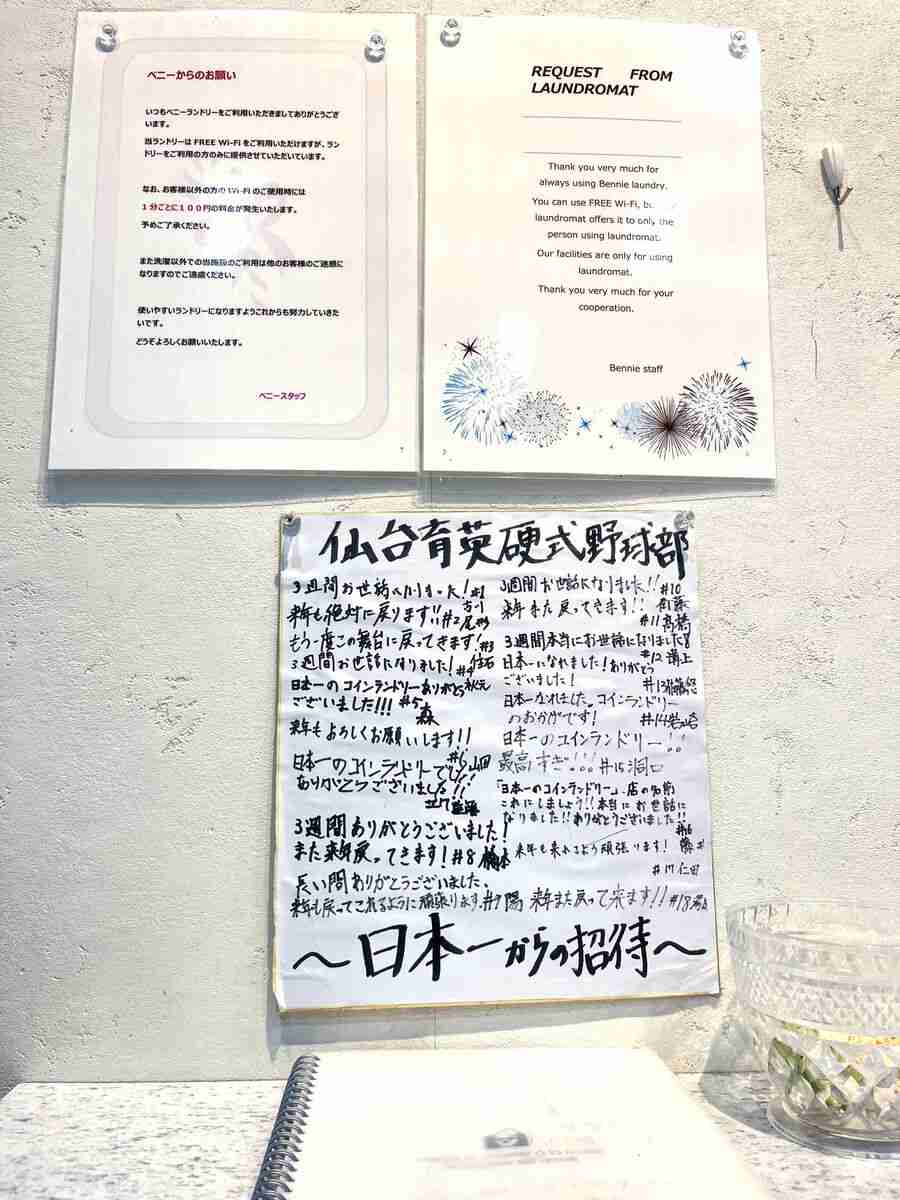 ベニーからのお願い
いつもベニーランドリーをご利用いただきましてありがとうござ
います。
当ランドリーは FREE Wi-Fi をご利用いただけますが、ラン
ドリーをご利用の方のみに提供させていただいています。
なお、お客様以外の方の Wi-Fi のご使用時には
1分ごとに100円の料金が発生いたします。
予めご了承ください。
また洗濯以外での当施設のご利用は他のお客様のご迷惑に
なりますのでご遠慮ください。
使いやすいランドリーになりますようこれからも努力していきた
いです。
どうぞよろしくお願いいたします。
ベニースタッフ
REQUEST FROM
LAUNDROMAT
Thank you very much for
always using Bennie laundry.
You can use FREE Wi-Fi,
laundromat offers it to only the
person using laundromat.
Our facilities are only for using
laundromat.
Thank you very much for your
cooperation.
Bennie staff
仙台育英硬式野球部
3週間お世話になりました! #1
来年も絶対に戻ります!! #2 尾形
もう一度この舞台に戻ってきます! #3
3週間お世話になりました! #4 住石
日本一のコインランドリーありがとう 秋元
ございました!!! #5
森
来年もよろしくお願いします!!
#6 山田
日本一のコインランドリーでした!
ありがとうございました!!
#7
3週間ありがとうございました!
また来年戻ってきます! #8 橋本
長い間ありがとうございました。
来年も戻ってこれるように頑張ります。 #9
3週間お世話になりました!! #10
来年また戻ってきます!! 斎藤
#11 高橋
3週間本当にお世話になりました
日本一になれました! ありがとう #12
ございました!
#13
日本一なれました。コインランドリー
のおかげです! #14
日本一のコインランドリー!!
最高すぎ!!! #15 洞口
「日本一のコインランドリー」、店の名前
これにしましょう!! 本当にお世話に
なりました!! ありがとうございました!!
#16
来年も来れるよう頑張ります!
#17 仁田
来年また戻って来ます!! #18
〜日本一からの招待〜